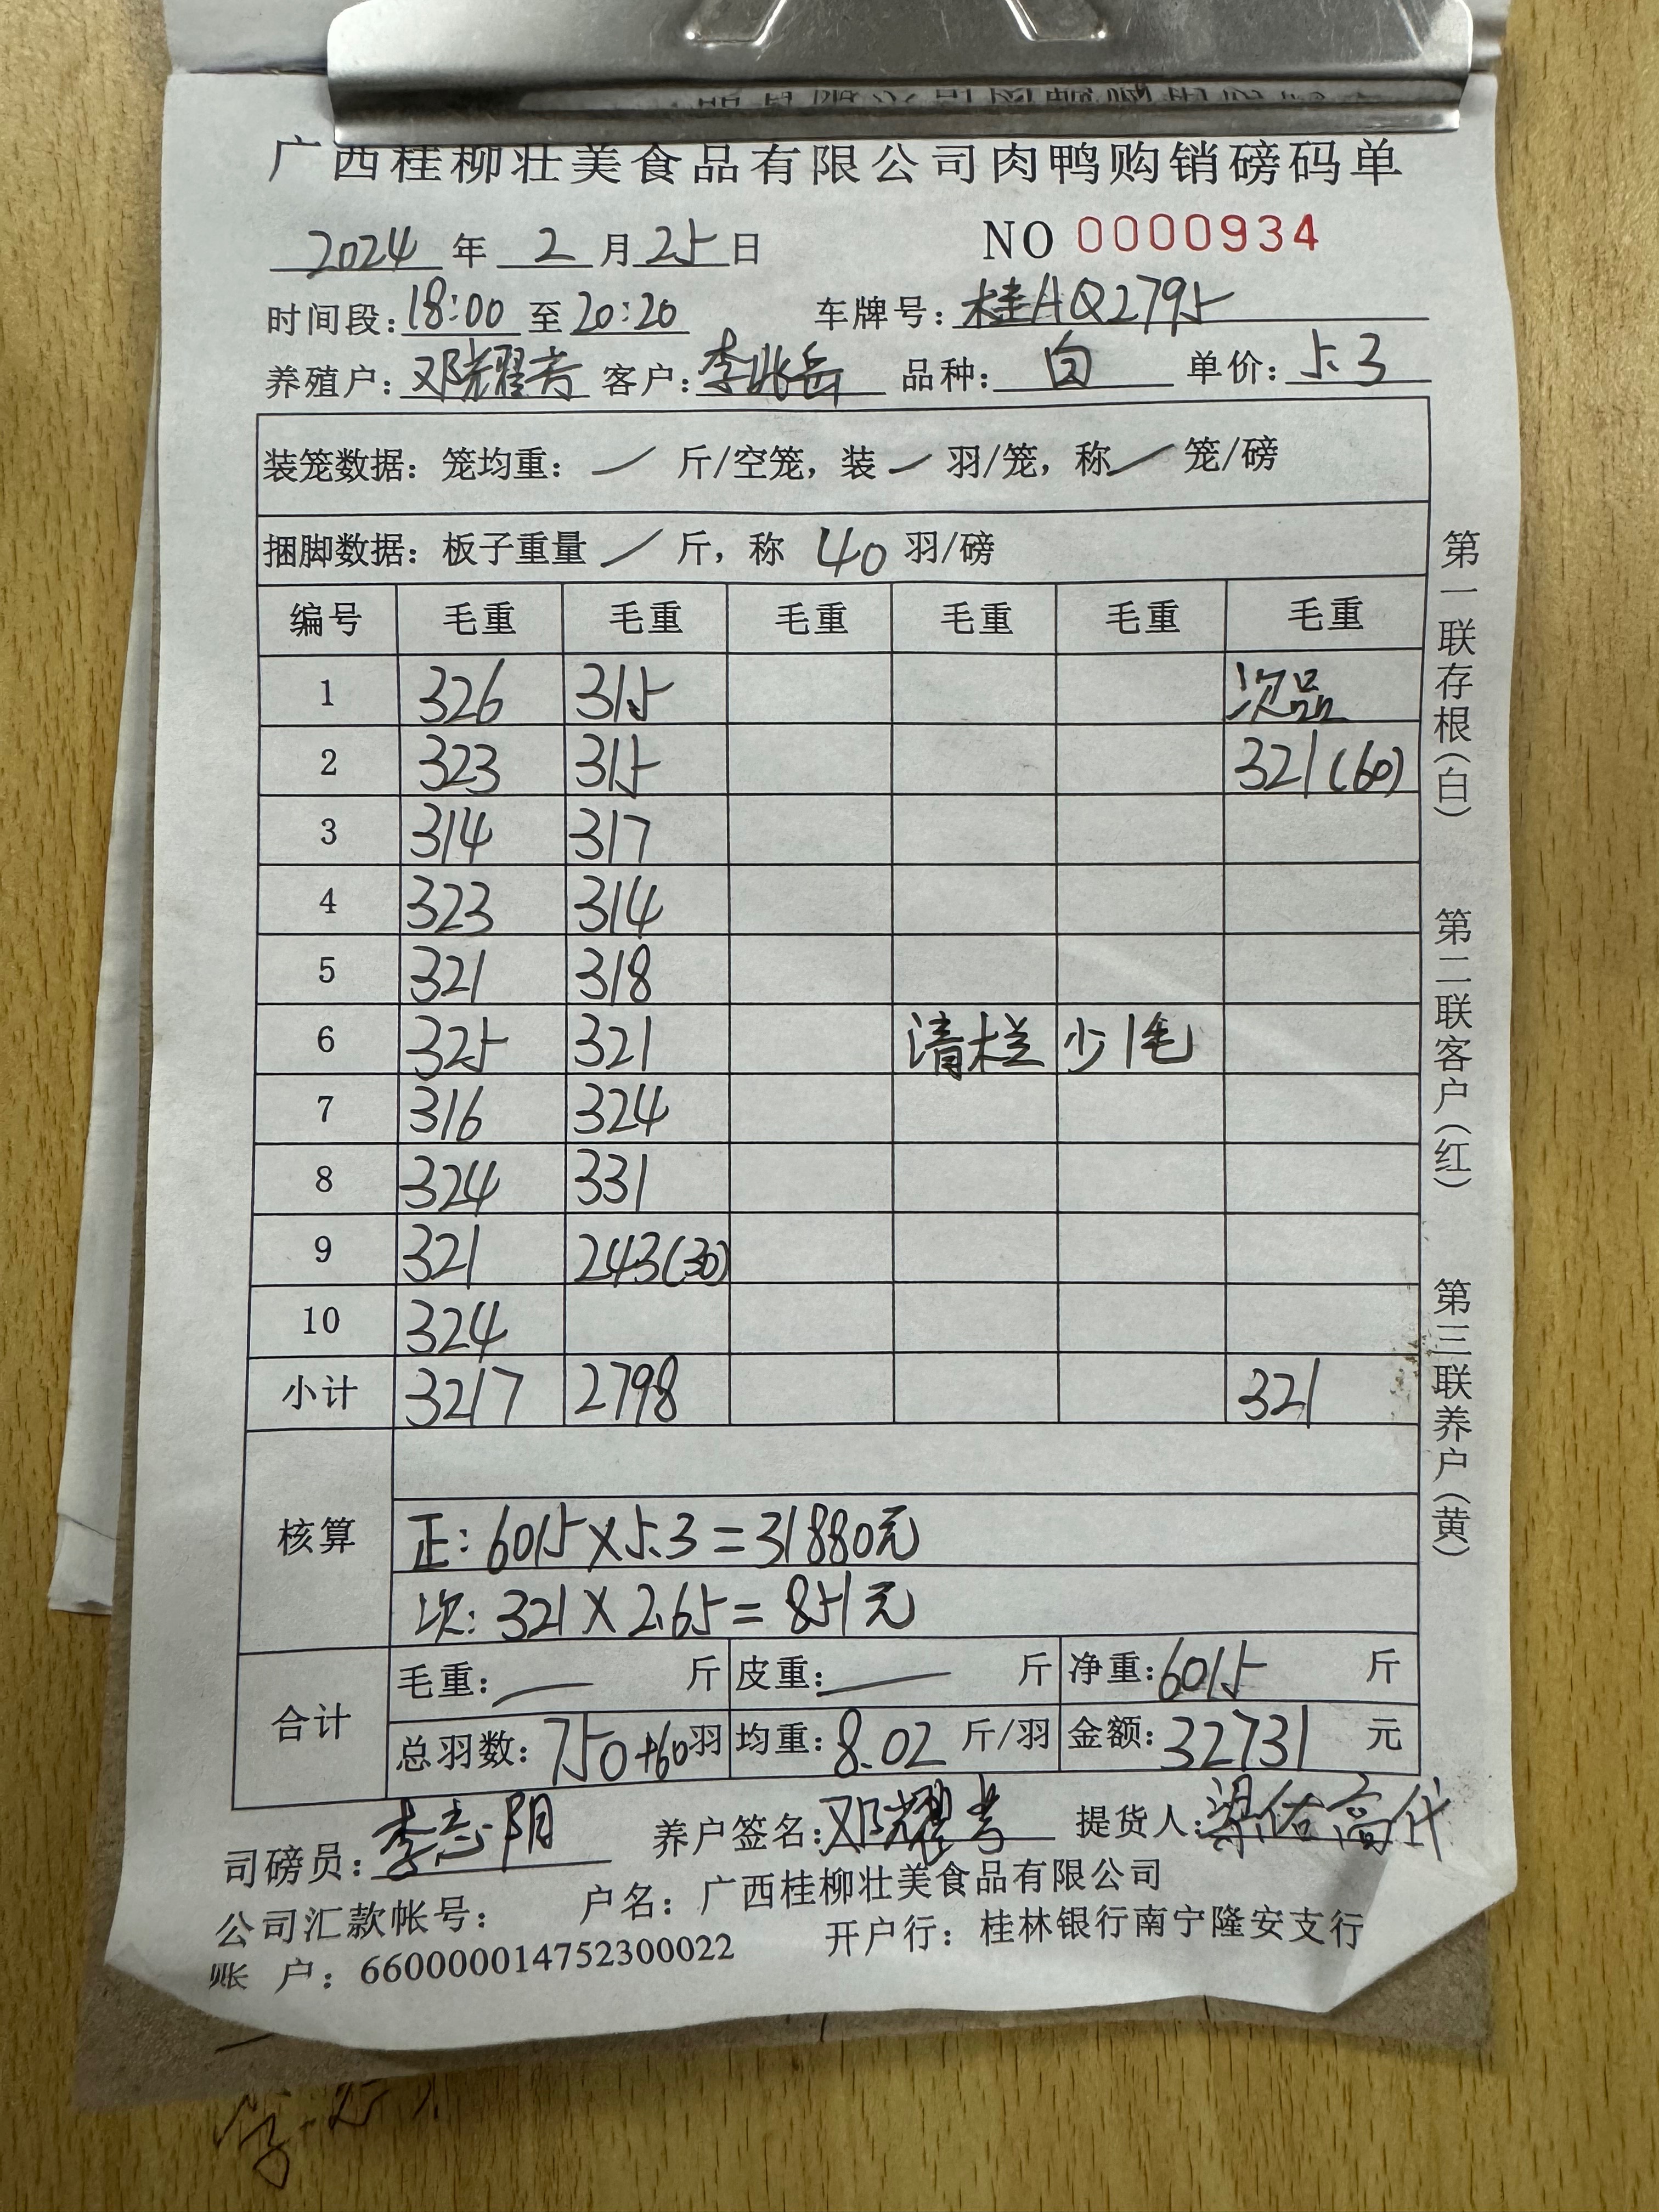 广西桂柳壮美食品有限公司肉鸭购销磅码单
2024 年 2 月 25 日 NO 0000934
时间段: 18:00 至 20:20 车牌号: 桂AQ2795
养殖户: 邓耀 客户: 李兆岳 品种: 白 单价: 5.3
装笼数据: 笼均重: / 斤/空笼, 装 / 羽/笼, 称 / 笼/磅
捆脚数据: 板子重量 / 斤, 称 40 羽/磅
编号 毛重 毛重 毛重 毛重 毛重 毛重
1 326 315 次品
2 323 315 321(60)
3 314 317
4 323 314
5 321 318
6 325 321 清栏 少1毛
7 316 324
8 324 331
9 321 243(30)
10 324
小计 3217 2798 321
核算
正: 6015×5.3=31880元
次: 321×2.65=851元
合计
毛重: — 斤 皮重: — 斤 净重: 6015 斤
总羽数: 750+60羽 均重: 8.02 斤/羽 金额: 32731 元
司磅员: 李志阳 养户签名: 邓耀 提货人: 梁佑高代
公司汇款帐号: 户名: 广西桂柳壮美食品有限公司
账 户: 660000014752300022 开户行: 桂林银行南宁隆安支行
第一联存根(白)
第二联客户(红)
第三联养户(黄)